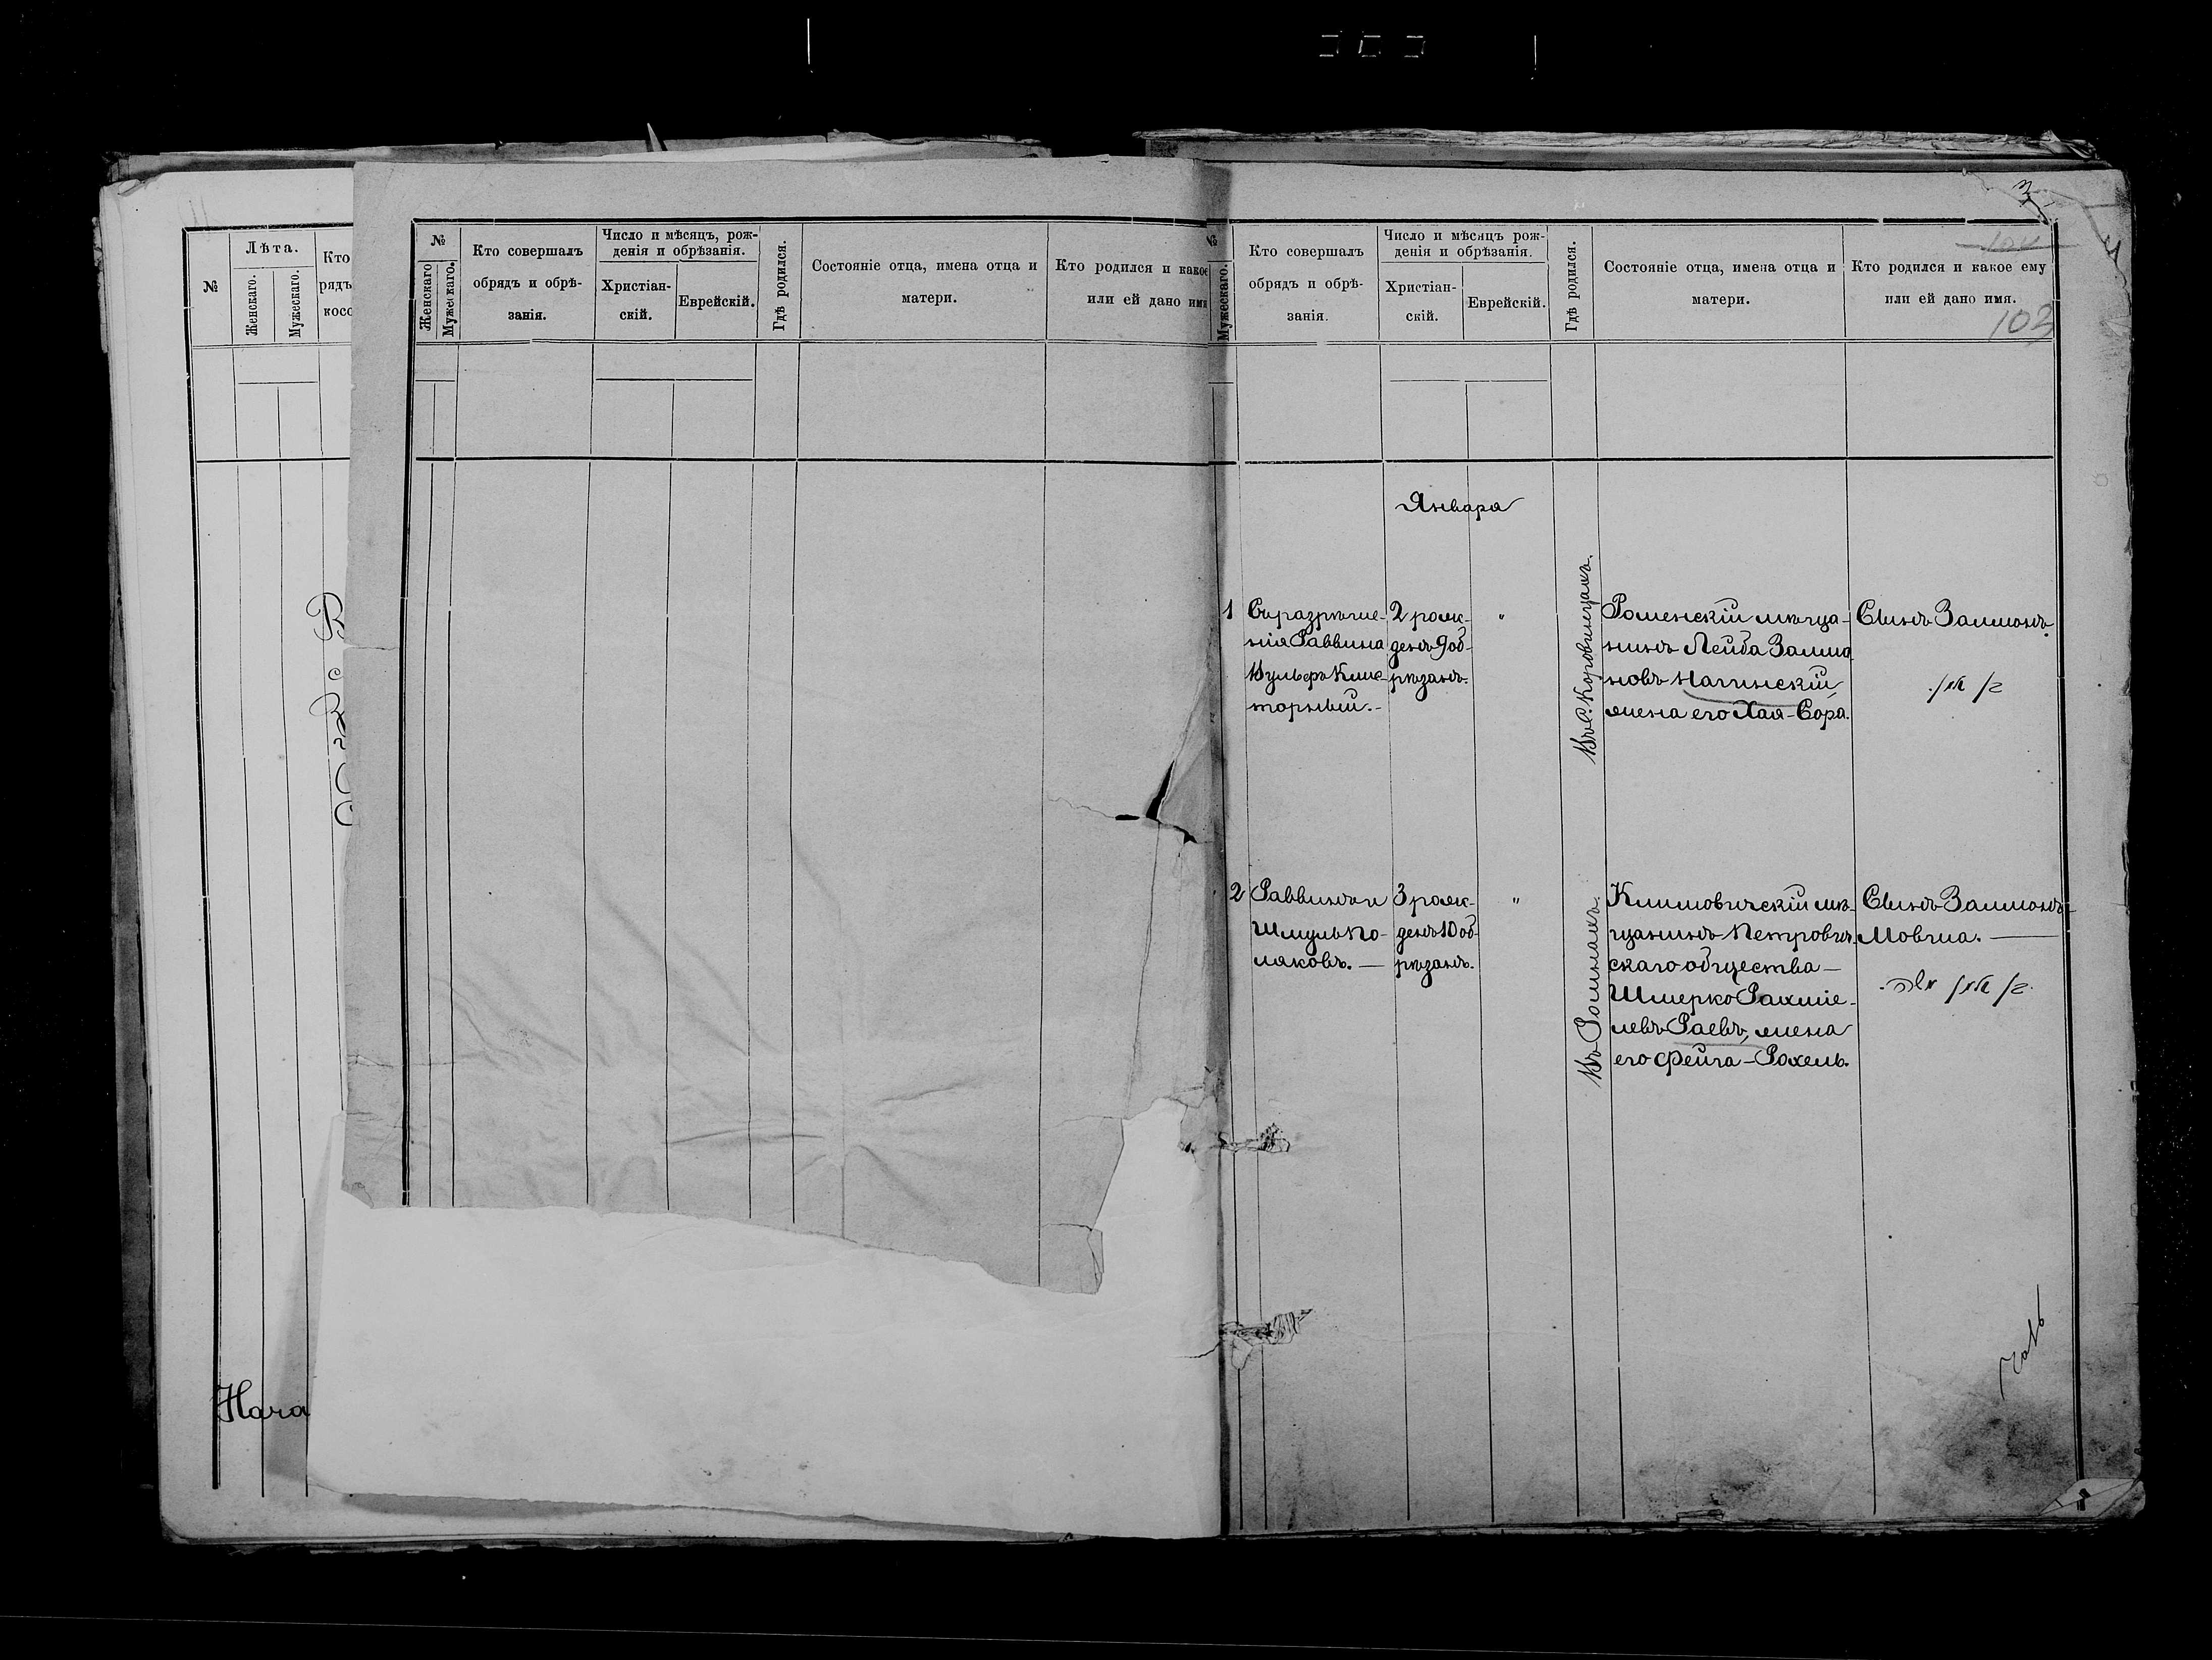 3
103
№
Лѣта.
Женскаго.
Мужескаго.
Кто
рядъ
косо
Нача
№
Женскаго
Мужескаго.
Кто совершалъ
обрядъ и обрѣ-
занія.
Число и мѣсяцъ, рож-
денія и обрѣзанія.
Христіан-
скій.
Еврейскій.
Гдѣ родился.
Состояніе отца, имена отца и
матери.
Кто родился и какое
или ей дано имя
№
Мужескаго.
Кто совершалъ
обрядъ и обрѣ-
занія.
Число и мѣсяцъ рож-
денія и обрѣзанія.
Христіан-
скій.
Еврейскій.
Гдѣ родился.
Состояніе отца, имена отца и
матери.
Кто родился и какое ему
или ей дано имя.
Января
1
Съ разрѣше-
нія Раввина
Вульфъ
2 рож-
денъ 9 об-
рѣзанъ.
"
Въ с. Коровинцахъ.
Роменскій мѣща-
нинъ Лейба Залмо
новъ Нагинскій,
жена его Хая-Сора.
Сынъ Залмонъ.
בן זלמן.
2
Раввинъ и
Шмуль По-
ляковъ. —
3 рож-
денъ 10 об-
рѣзанъ.
"
Въ Ромнахъ.
Климовичскій мѣ-
щанинъ Петрович-
скаго общества —
Шмерко Рахміе-
левъ Раевъ, жена
его Фейга-Рохель.
Сынъ Залмонъ-
Мовша. —
בן זלמן משה.